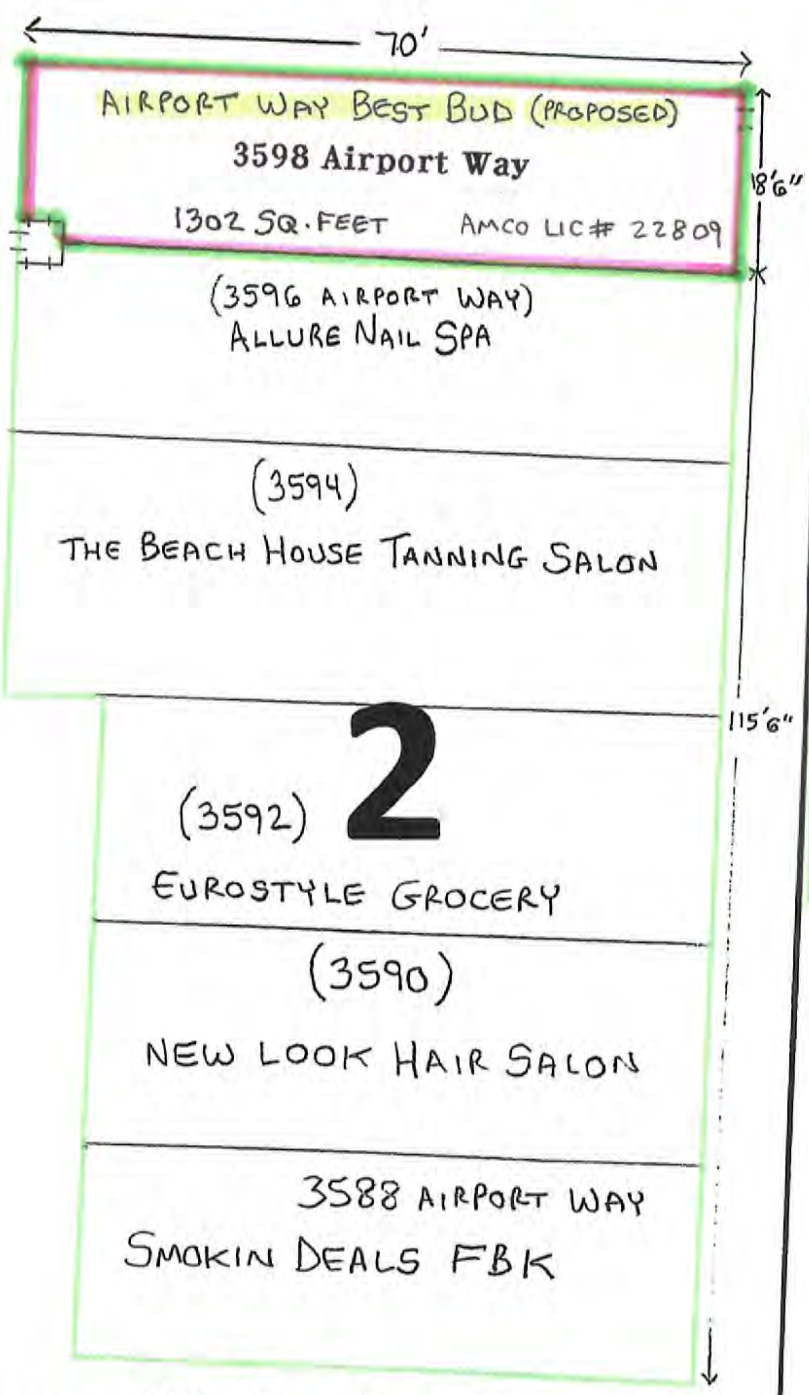 70'
AIRPORT WAY BEST BUD (PROPOSED)
3598 Airport Way
18'6"
1302 SQ. FEET AMCO LIC# 22809
(3596 AIRPORT WAY)
ALLURE NAIL SPA
(3594)
THE BEACH HOUSE TANNING SALON
115'6"
2
(3592)
EUROSTYLE GROCERY
(3590)
NEW LOOK HAIR SALON
3588 AIRPORT WAY
SMOKIN DEALS FBK